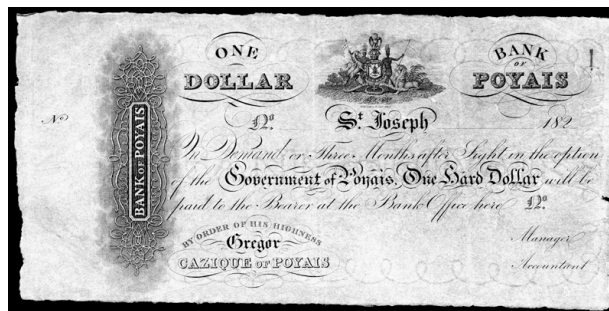 ONE
DOLLAR
BANK
OF
POYAIS
BANK OF POYAIS
No
St. Joseph
182
On Demand, or Three Months after Sight in the option
of the Government of Poyais, One Hard Dollar will be
paid to the Bearer at the Bank Office here
BY ORDER OF HIS HIGHNESS
Gregor
CAZIQUE OF POYAIS
Manager
Accountant